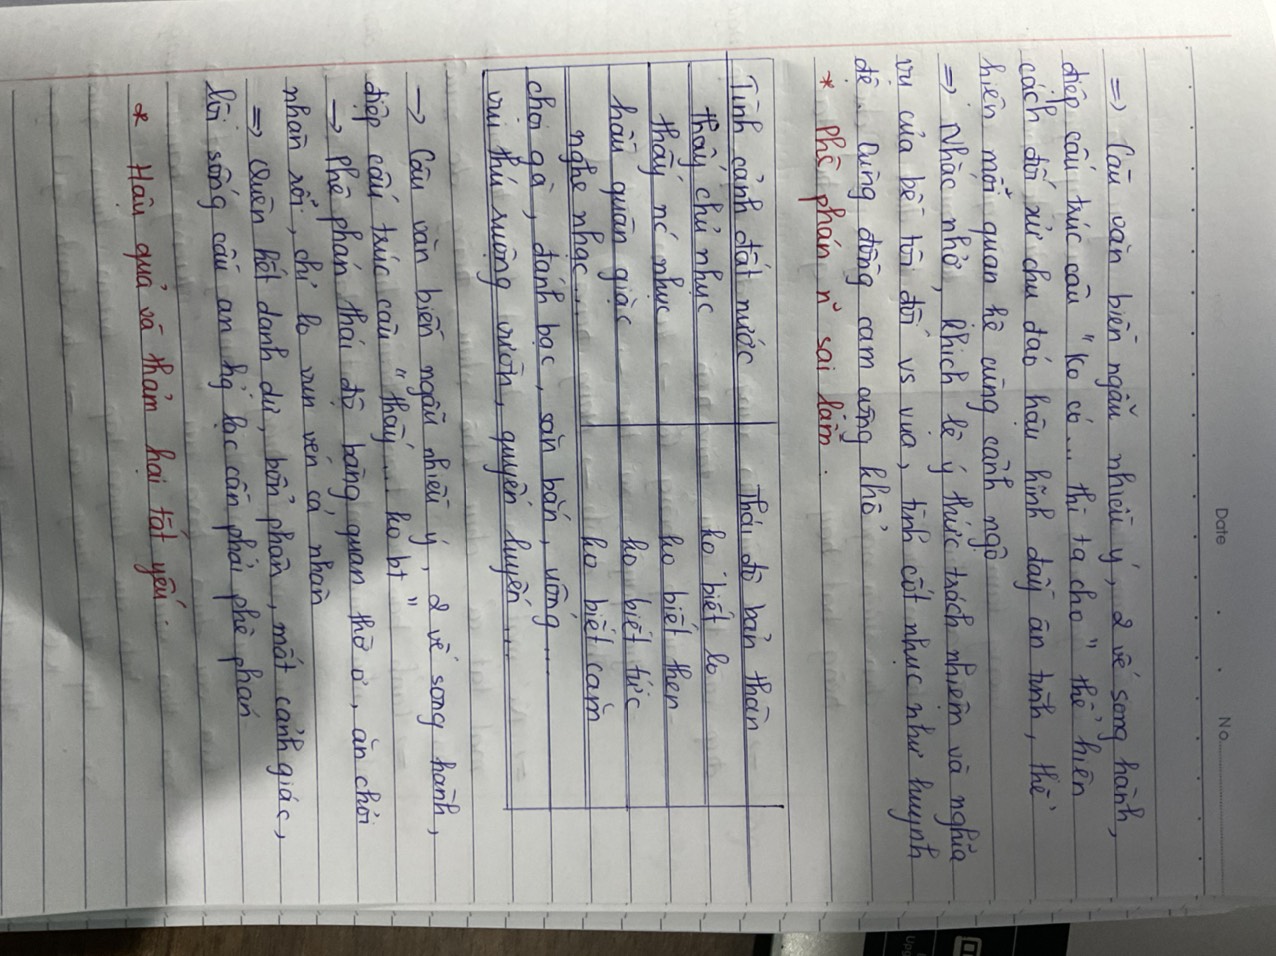 Date . . No
=> Câu văn biền ngẫu nhiều ý, 2 vế song hành,
điệp cấu trúc câu "ko có... thì ta cho" thể hiện
cách đối xử chu đáo hậu hĩnh đầy ân tình, thể
hiện mối quan hệ cùng cảnh ngộ
=> Nhắc nhở, khích lệ ý thức trách nhiệm và nghĩa
vụ của bề tôi đối vs vua, tình cốt nhục như huynh
đệ. Cùng đồng cam cộng khổ
* Phê phán n~ sai lầm.
Tình cảnh đất nước Thái độ bản thân
thấy chủ nhục ko biết lo
thấy nc nhục ko biết thẹn
hầu quân giặc ko biết tức
nghe nhạc... ko biết căm
chọi gà, đánh bạc, săn bắn, uống...
vui thú ruộng vườn, quyến luyến...
-> Câu văn biền ngẫu nhiều ý, 2 vế song hành,
điệp cấu trúc câu "thấy... ko bt"
-> Phê phán thái độ bàng quan thờ ơ, ăn chơi
nhàn rỗi, chỉ lo vun vén cá nhân
=> Quên hết danh dự, bổn phận, mất cảnh giác,
lối sống cầu an hg lạc cần phải phê phán
* Hậu quả và thảm hại tất yếu.